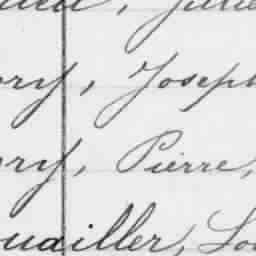 ory, Joseph
ory, Pierre,
ouailler, Lou